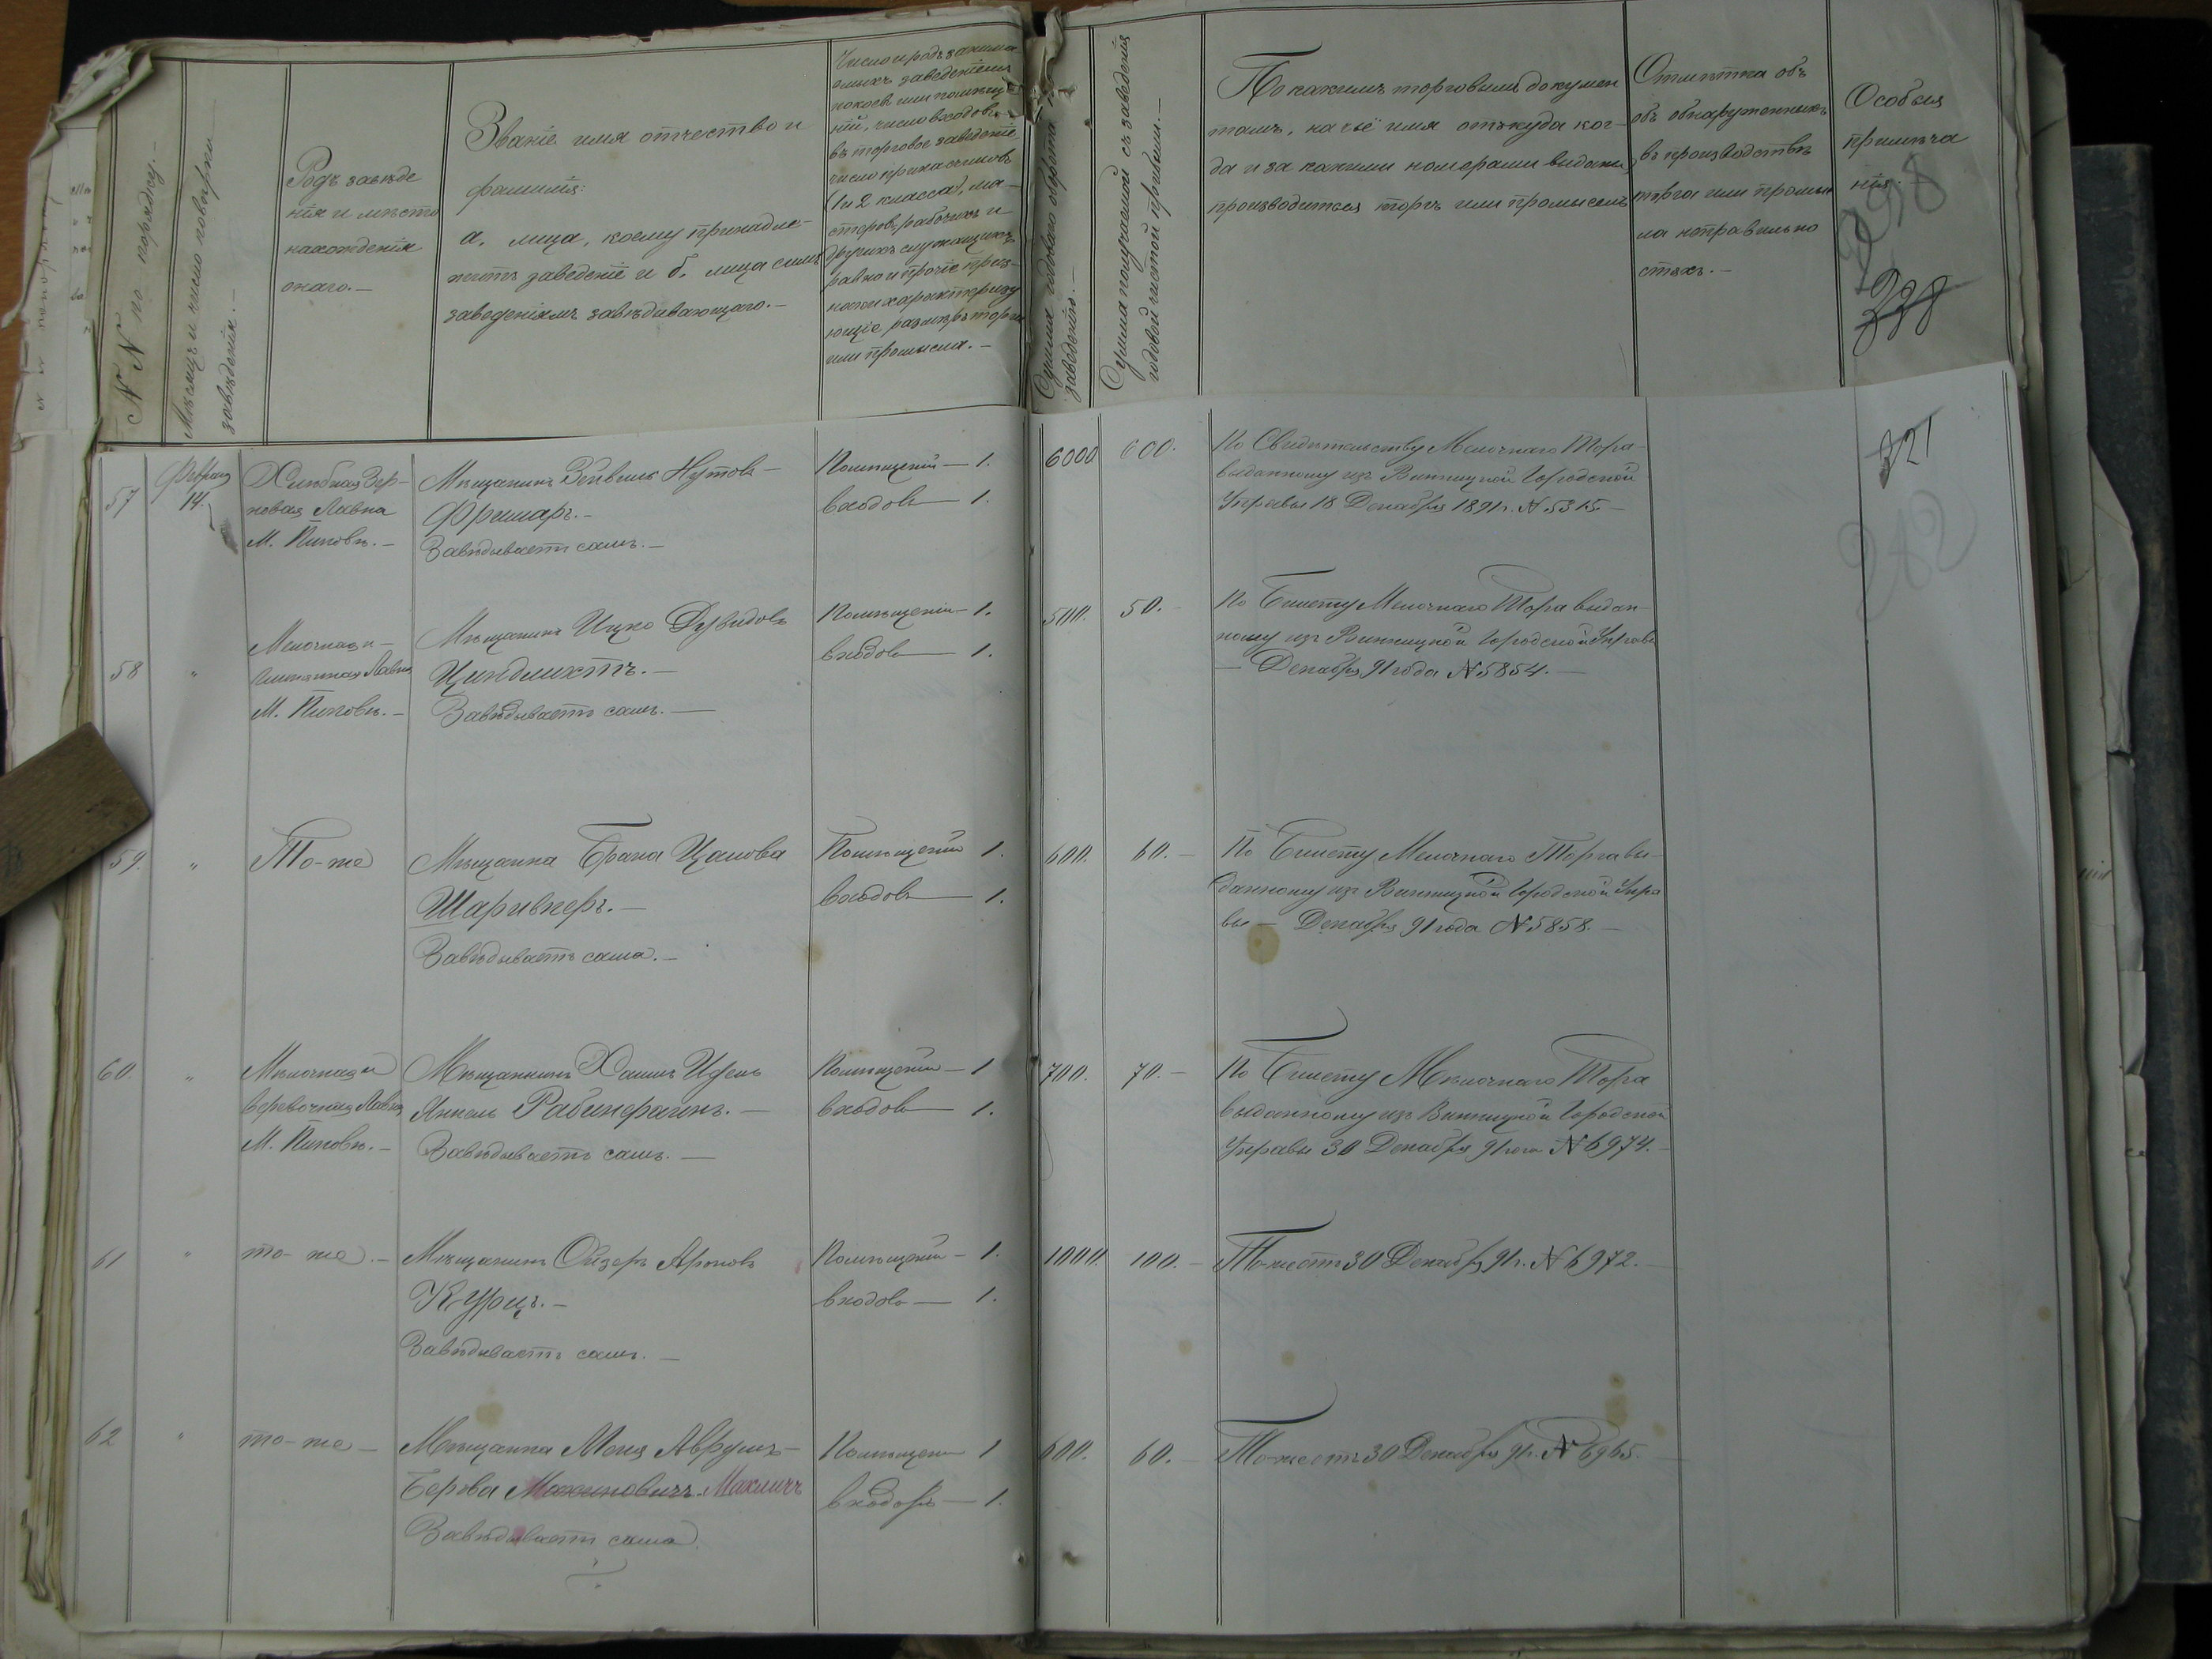 N N по порядку. —
Мѣсяцъ и число повѣрки
заведенія. —
Родъ заведе
нія и мѣсто
нахожденія
онаго. —
Званіе имя отчество и
фамилія:
а, лица, коему принадле-
житъ заведеніе и б, лица симъ
заведеніямъ завѣдывающаго. —
Число и родъ занима
емыхъ заведеніемъ
покоевъ или помѣще
ній, число входовъ
въ торговое заведеніе
число прикащиковъ
(1 и 2 класса), ма-
стеровъ, рабочихъ и
другихъ служащихъ
равно и прочіе приз-
наки характеризу
ющіе размѣръ торга
или промысла. —
Сумма годоваго оборота по
заведенію. —
Сумма получаемой съ заведенія
годовой чистой прибыли. —
По какимъ торговымъ докумен
тамъ, на чьё имя откуда ког-
да и за какими номерами выданы
производится торгъ или промыселъ
Отмѣтка объ
объ обнаруженныхъ
въ производствѣ
торга или промы
ла неправильно
стяхъ. —
Особыя
примѣча
нія. —
57
Февраля
14.
Хлѣбная Зер-
новая Лавка
М. Пиковъ. —
Мѣщанинъ Зейвель Нутовъ —
Фришаръ. —
Завѣдываетъ самъ. —
Помѣщеній — 1.
входовъ — 1.
6000
600.
По Свидѣтельству Мелочнаго Торга
выданному изъ Винницкой Городской
Управы 18 Декабря 1891 г. N 5315 —
321
282
58
"
Мелочная и
Лавка
М. Пиковъ. —
Мѣщанинъ Ицко Дувидовъ
Циндлихтъ. —
Завѣдываетъ самъ. —
Помѣщеній — 1.
входовъ — 1.
500.
50. —
По Билету Мелочнаго Торга выдан-
ному изъ Винницкой Городской Управы
— Декабря 91 года N 5854. —
59.
"
То-же
Мѣщанка Брана Цалова
Шаривкеръ. —
Завѣдываетъ сама. —
Помѣщеній 1.
входовъ — 1.
600.
60. —
По Билету Мелочнаго Торга вы-
данному изъ Винницкой Городской Упра
вы — Декабря 91 года N 5858. —
60.
"
Мелочная и
веревочная Лавка
М. Пиковъ. —
Мѣщанинъ Хаимъ
Янкель Рабинерзинъ. —
Завѣдываетъ самъ. —
Помѣщеній — 1
входовъ — 1.
700.
70. —
По Билету Мелочнаго Торга
выданному изъ Винницкой Городской
Управы 30 Декабря 91 года N 6974. —
61
"
то-же. —
Мѣщанинъ Ойзеръ Ароновъ
Курцъ. —
Завѣдываетъ самъ. —
Помѣщеній — 1.
входовъ — 1.
1000.
100. —
То-же отъ 30 Декабря 91 г. N 6972. —
62
"
то-же —
Мѣщанка Меня Аврумъ-
Берова Махлинович. Махличъ
Завѣдываетъ сама.
Помѣщеній 1
входовъ — 1.
600.
60. —
То-же отъ 30 Декабря 91 г. N 6965. —